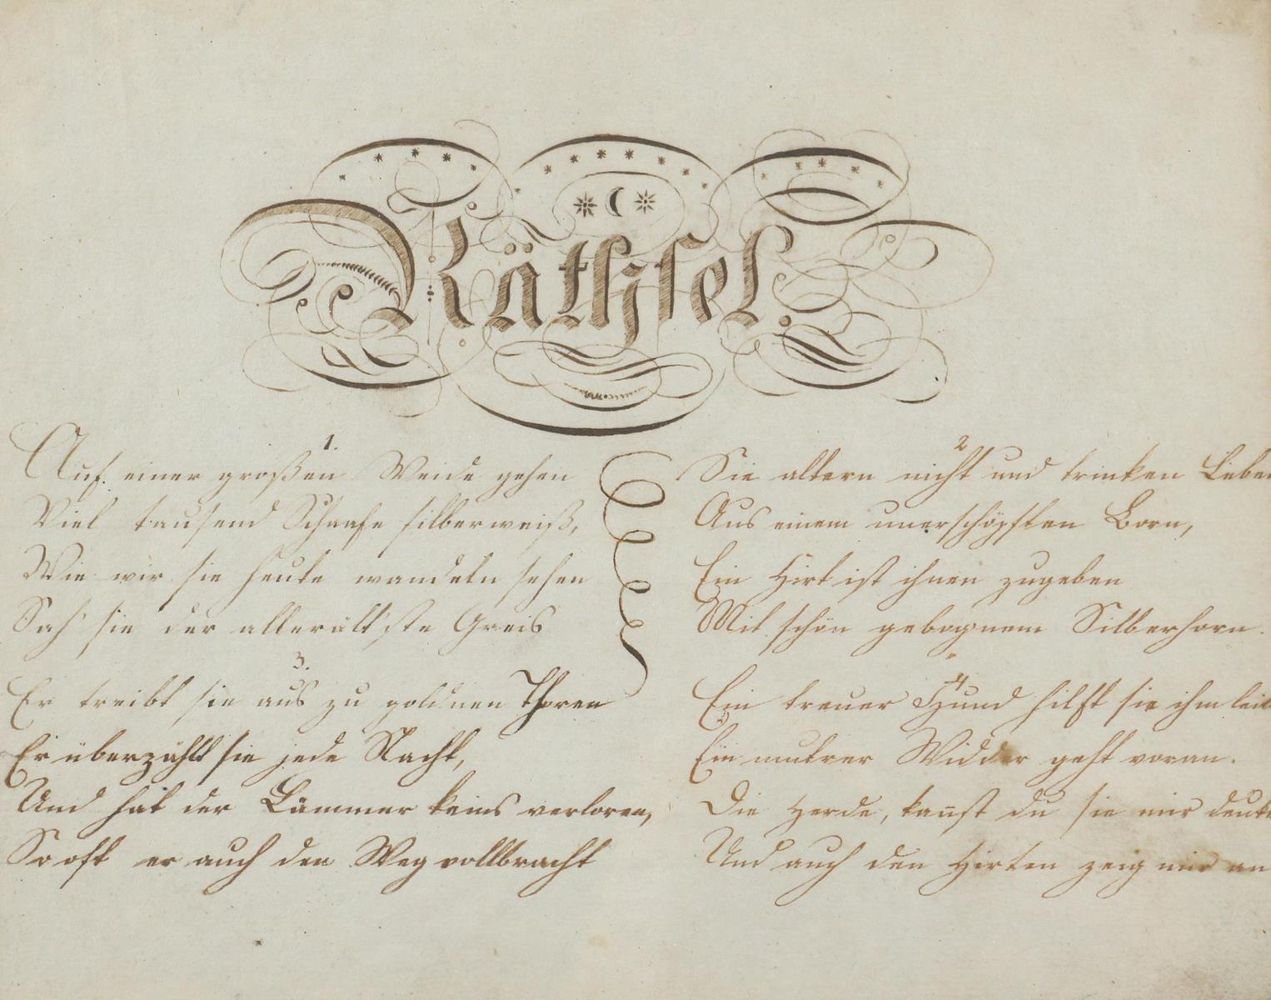 Räthsel.
1.
Auf einer großen Weide gehen
Viel tausend Schaafe silberweiß,
Wie wir sie heute wandeln sehen
Sah sie der allerält'ste Greis
2
Sie altern nicht und trinken Leben
Aus einem unerschöpften Born,
Ein Hirt ist ihnen zugeben
Mit schön gebognem Silberhorn.
3.
Er treibt sie aus zu goldnen Thoren
Er überzählt sie jede Nacht,
Und hat der Lämmer keins verloren,
So oft er auch den Weg vollbracht
4
Ein treuer Hund hilft sie ihm leit
Ein muntrer Widder geht voran.
Die Herde, kan̄st du sie mir deute
Und auch den Hirten zeig mir an